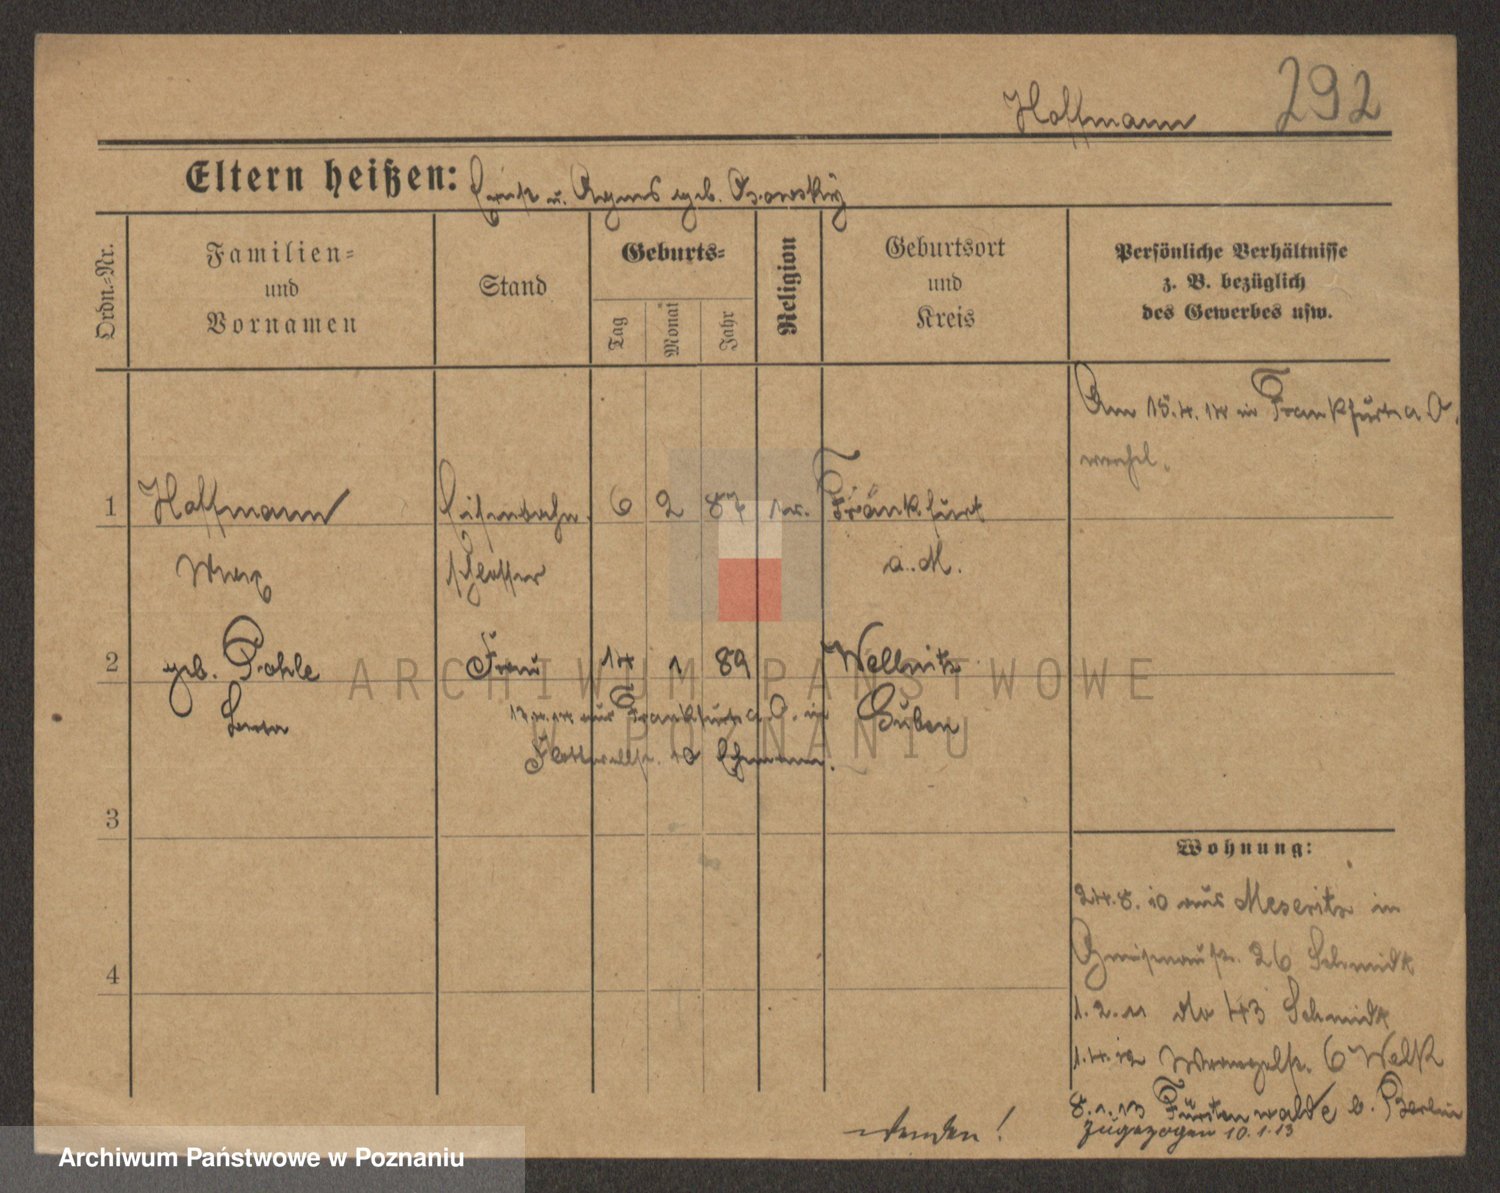 Hoffmann 292
Eltern heißen: Ernst u. Agnes geb.
Ordn.-Nr.
Familien-
und
Vornamen
Stand
Geburts-
Tag
Monat
Jahr
Religion
Geburtsort
und
Kreis
Persönliche Verhältnisse
z. B. bezüglich
des Gewerbes usw.
Am 15.4.14 in Frankfurt a O.
1 Hoffmann Eisenbahn 6 2 87 Frankfurt
Max schlosser a. M.
2 geb. Pohle Frau 14 1 89 Wellnitz
aus Frankfurt a. O. in Guben
3
4
Wohnung:
24.8.10 aus Meseritz in
Gneisenaustr. 26 Schmidt
1.2.11 do 43 Schmidt
1.4.12 Wrangelstr. 6 Welk
8.1.13 Fürstenwalde b. Berlin
zugezogen 10.1.13
wenden!
ARCHIWUM PAŃSTWOWE
W POZNANIU
Archiwum Państwowe w Poznaniu